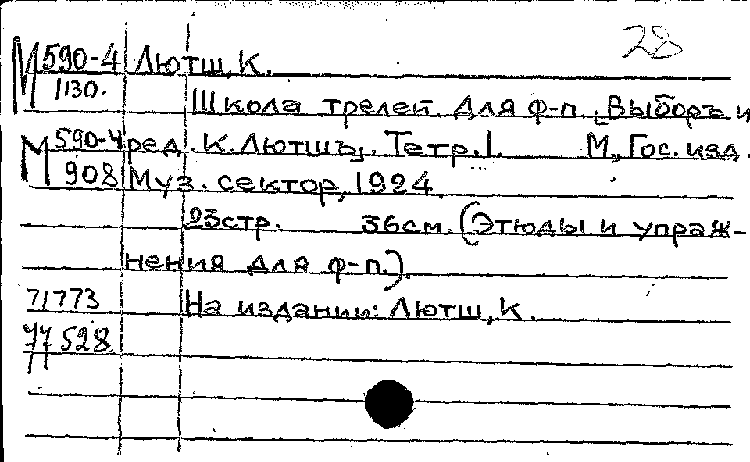 28
М 590-4 Лютш, К.
1130.
Школа трелей для ф-п. Выборъ и
М 590-4 ред. К. Лютшъ. Тетр. 1. М., Гос. изд.
908 Муз. сектор, 1924.
23стр. 36см. (Этюды и упраж-
нения для ф-п.).
71773 На издании: Лютш, К.
77528